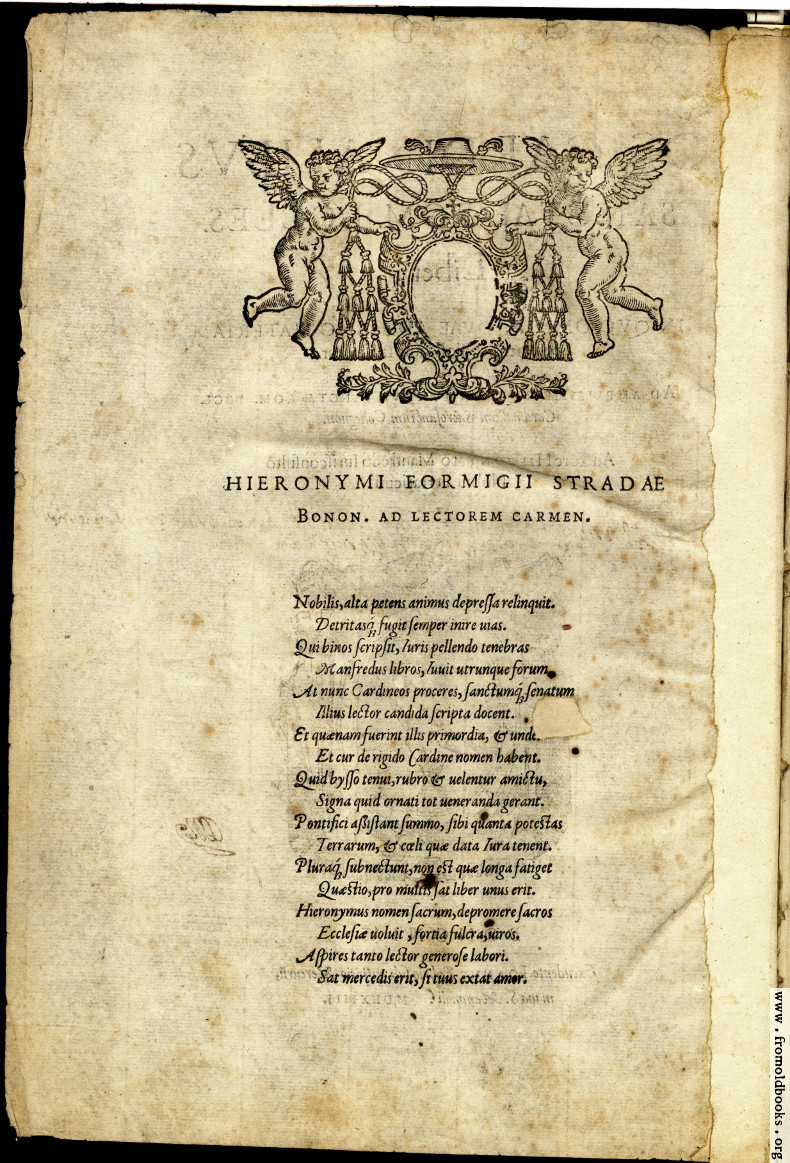 HIERONYMI FORMIGII STRADAE
BONON. AD LECTOREM CARMEN.
Nobilis, alta petens animus depreſſa relinquit.
Detritasq́; fugit ſemper inire uias.
Qui binos ſcripſit, Iuris pellendo tenebras
Manfredus libros, Iuuit utrunque forum.
At nunc Cardineos proceres, ſanctumq́; ſenatum
Illius lector candida ſcripta docent.
Et quænam fuerint illis primordia, & unde.
Et cur de rigido Cardine nomen habent.
Quid byſſo tenui, rubro & uelentur amictu,
Signa quid ornati tot ueneranda gerant.
Pontifici aſsiſtant ſummo, ſibi quanta poteſtas
Terrarum, & cœli quæ data Iura tenent.
Pluraq́; ſubnectunt, non eſt quæ longa fatiget
Quæſtio, pro multis ſat liber unus erit.
Hieronymus nomen ſacrum, depromere ſacros
Eccleſiæ uoluit, fortia fulcra, uiros.
Aſpires tanto lector generoſe labori.
Sat mercedis erit, ſi tuus extat amor.
www.fromoldbooks.org